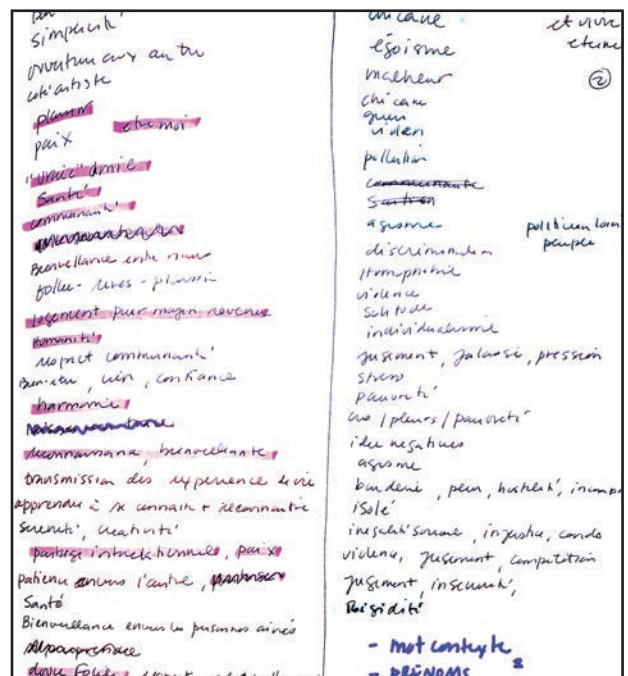 simplicité
ouverture aux autres
coté artiste
plaisir
paix être moi
"vraie" amie
Santé
communauté
Bienveillance entre nous
folle - rires - plaisir
Logement pour moyen revenue
Humanité
respect communauté
Bien-être, rire, confiance
harmonie
reconnaissance, bienveillante
transmission des expérience de vie
apprendre à se connaitre + reconnaitre
sérénité, créativité
partage intergénérationnel, paix
patience envers l'autre,
Santé
Bienveillance envers les personnes ainés
doux Foyer,
chicane
égoisme
malheur
chicane
pollution
agisme
discrimination
Homophobie
violence
Solitude
individualisme
jugement, jalousie, pression
stress
pauvreté
cris / pleurs / pauvreté
idée négatives
agisme
peur, hostilité,
isolé
inégalité sociale, injustice, condo
violence, jugement, compétition
jugement, insécurité,
Rigidité
- mot contexte
- PRÉNOMS
et vivre
2
politicien loin
peuple